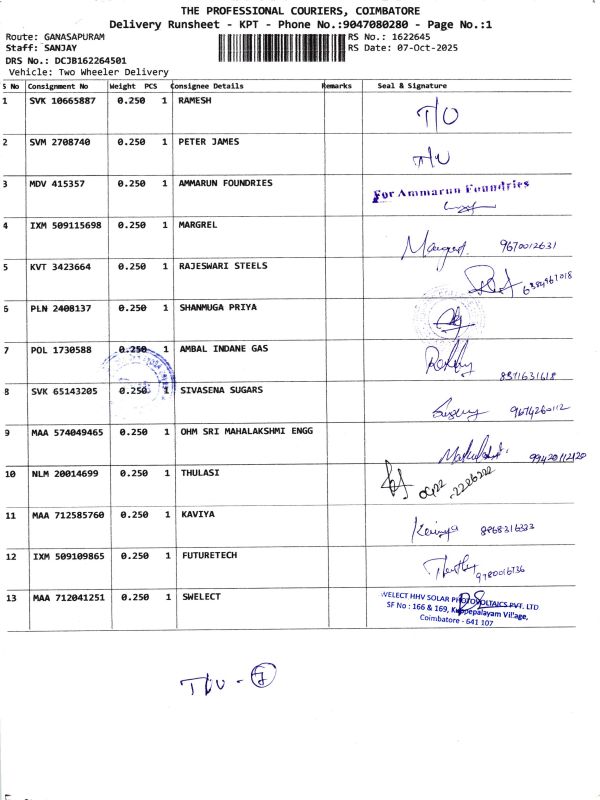 THE PROFESSIONAL COURIERS, COIMBATORE
Delivery Runsheet - KPT - Phone No.:9047080280 - Page No.:1
Route: GANASAPURAM
Staff: SANJAY
DRS No.: DCJB162264501
Vehicle: Two Wheeler Delivery
RS No.: 1622645
RS Date: 07-Oct-2025
S No Consignment No Weight PCS Consignee Details Remarks Seal & Signature
1 SVK 10665887 0.250 1 RAMESH
2 SVM 2708740 0.250 1 PETER JAMES
3 MDV 415357 0.250 1 AMMARUN FOUNDRIES For Ammarun Foundries
4 IXM 509115698 0.250 1 MARGREL 9670012631
5 KVT 3423664 0.250 1 RAJESWARI STEELS
6 PLN 2408137 0.250 1 SHANMUGA PRIYA
7 POL 1730588 0.250 1 AMBAL INDANE GAS
8 SVK 65143205 0.250 1 SIVASENA SUGARS
9 MAA 574049465 0.250 1 OHM SRI MAHALAKSHMI ENGG
10 NLM 20014699 0.250 1 THULASI
11 MAA 712585760 0.250 1 KAVIYA
12 IXM 509109865 0.250 1 FUTURETECH
13 MAA 712041251 0.250 1 SWELECT
WELECT HHV SOLAR PHOTOVOLTAICS PVT. LTD
SF No : 166 & 169, Kuppepalayam Village,
Coimbatore - 641 107